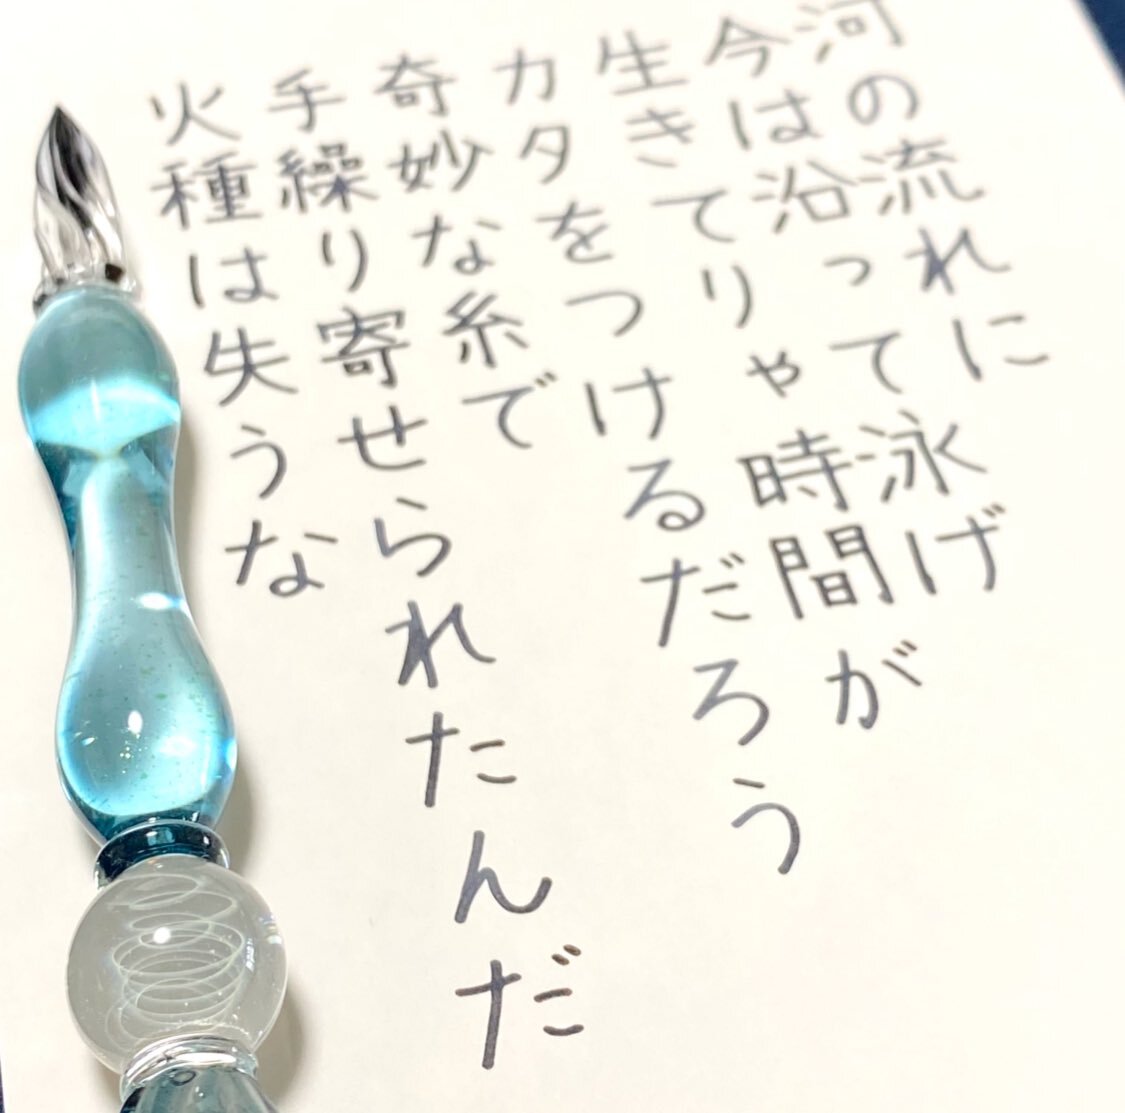 河の流れに泳げ
今は沿って
生きてりゃ時間が
カタをつけるだろう
奇妙な糸で
手繰り寄せられたんだ
火種は失うな